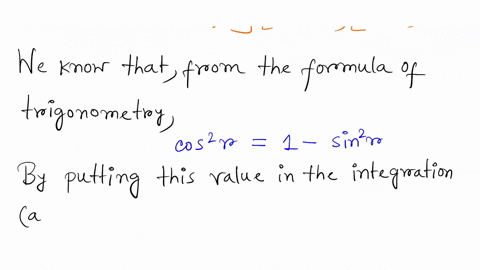 We know that, from the formula of
trigonometry,
cos²x = 1 - sin²x
By putting this value in the integration
(a